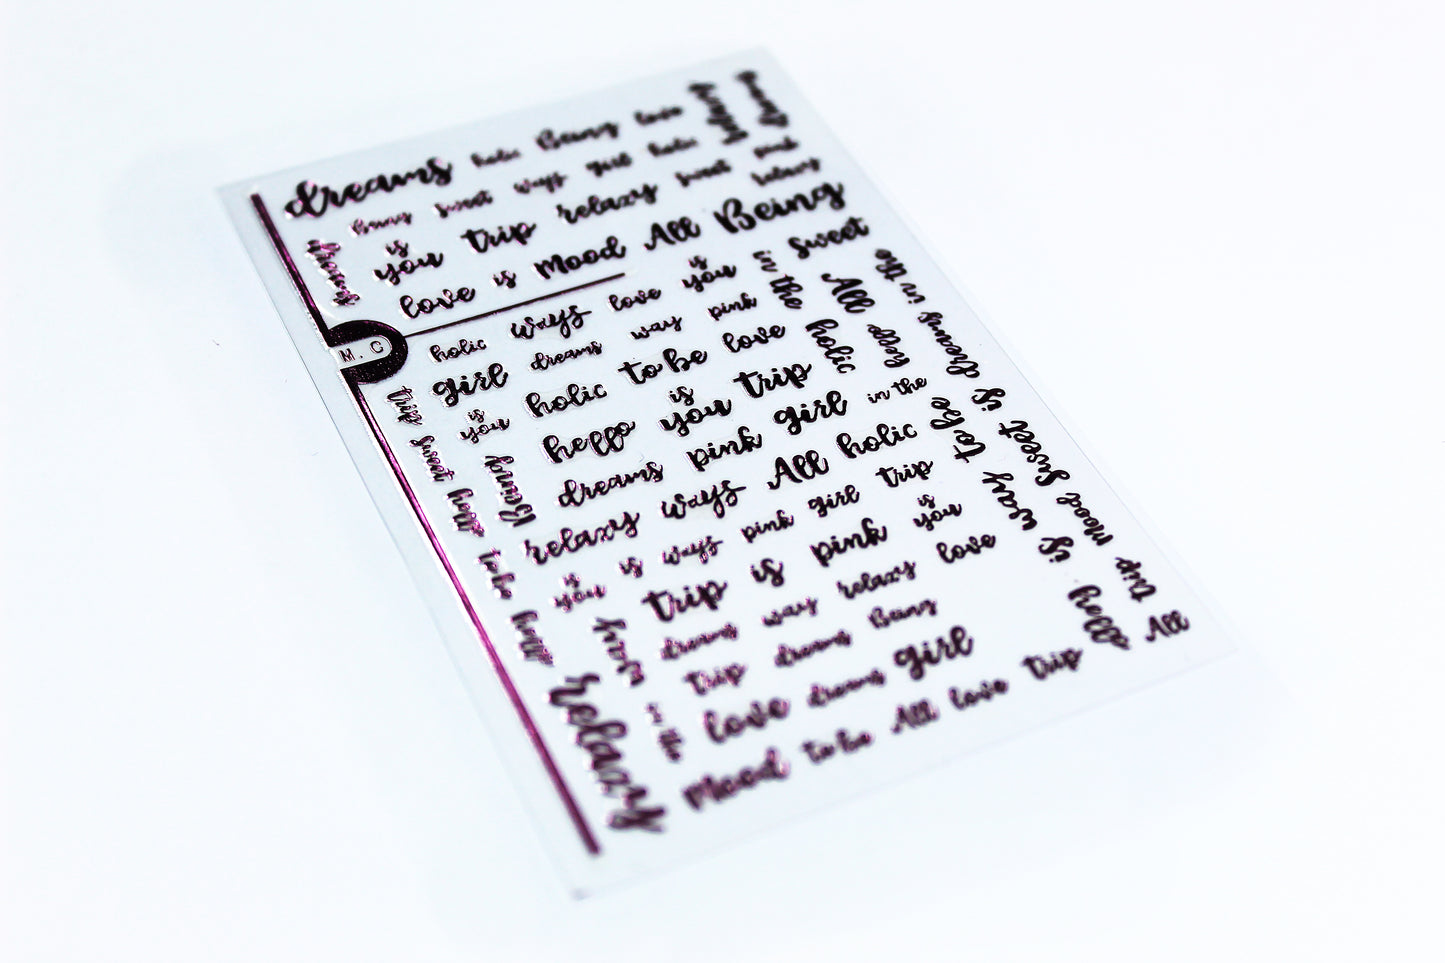 dreams holic Being love
Being sweet ways girl holic sweet pink
is
you trip relaxy relaxy
love is Mood All Being
dreams
M. C
holic ways love is you in the sweet
girl dreams way pink All
is
you holic to be love holic
hello is you trip
dreams pink girl in the
relaxy ways All holic
is
you is ways pink girl trip
trip is pink is you
dreams way relaxy love
trip dreams Being
love dreams girl
Mood to be All love trip All
trip sweet hello to be hello
Being
way
in the
relaxy
hello
to be
way
is
hello
in the
dreams
is
sweet
Mood
trip